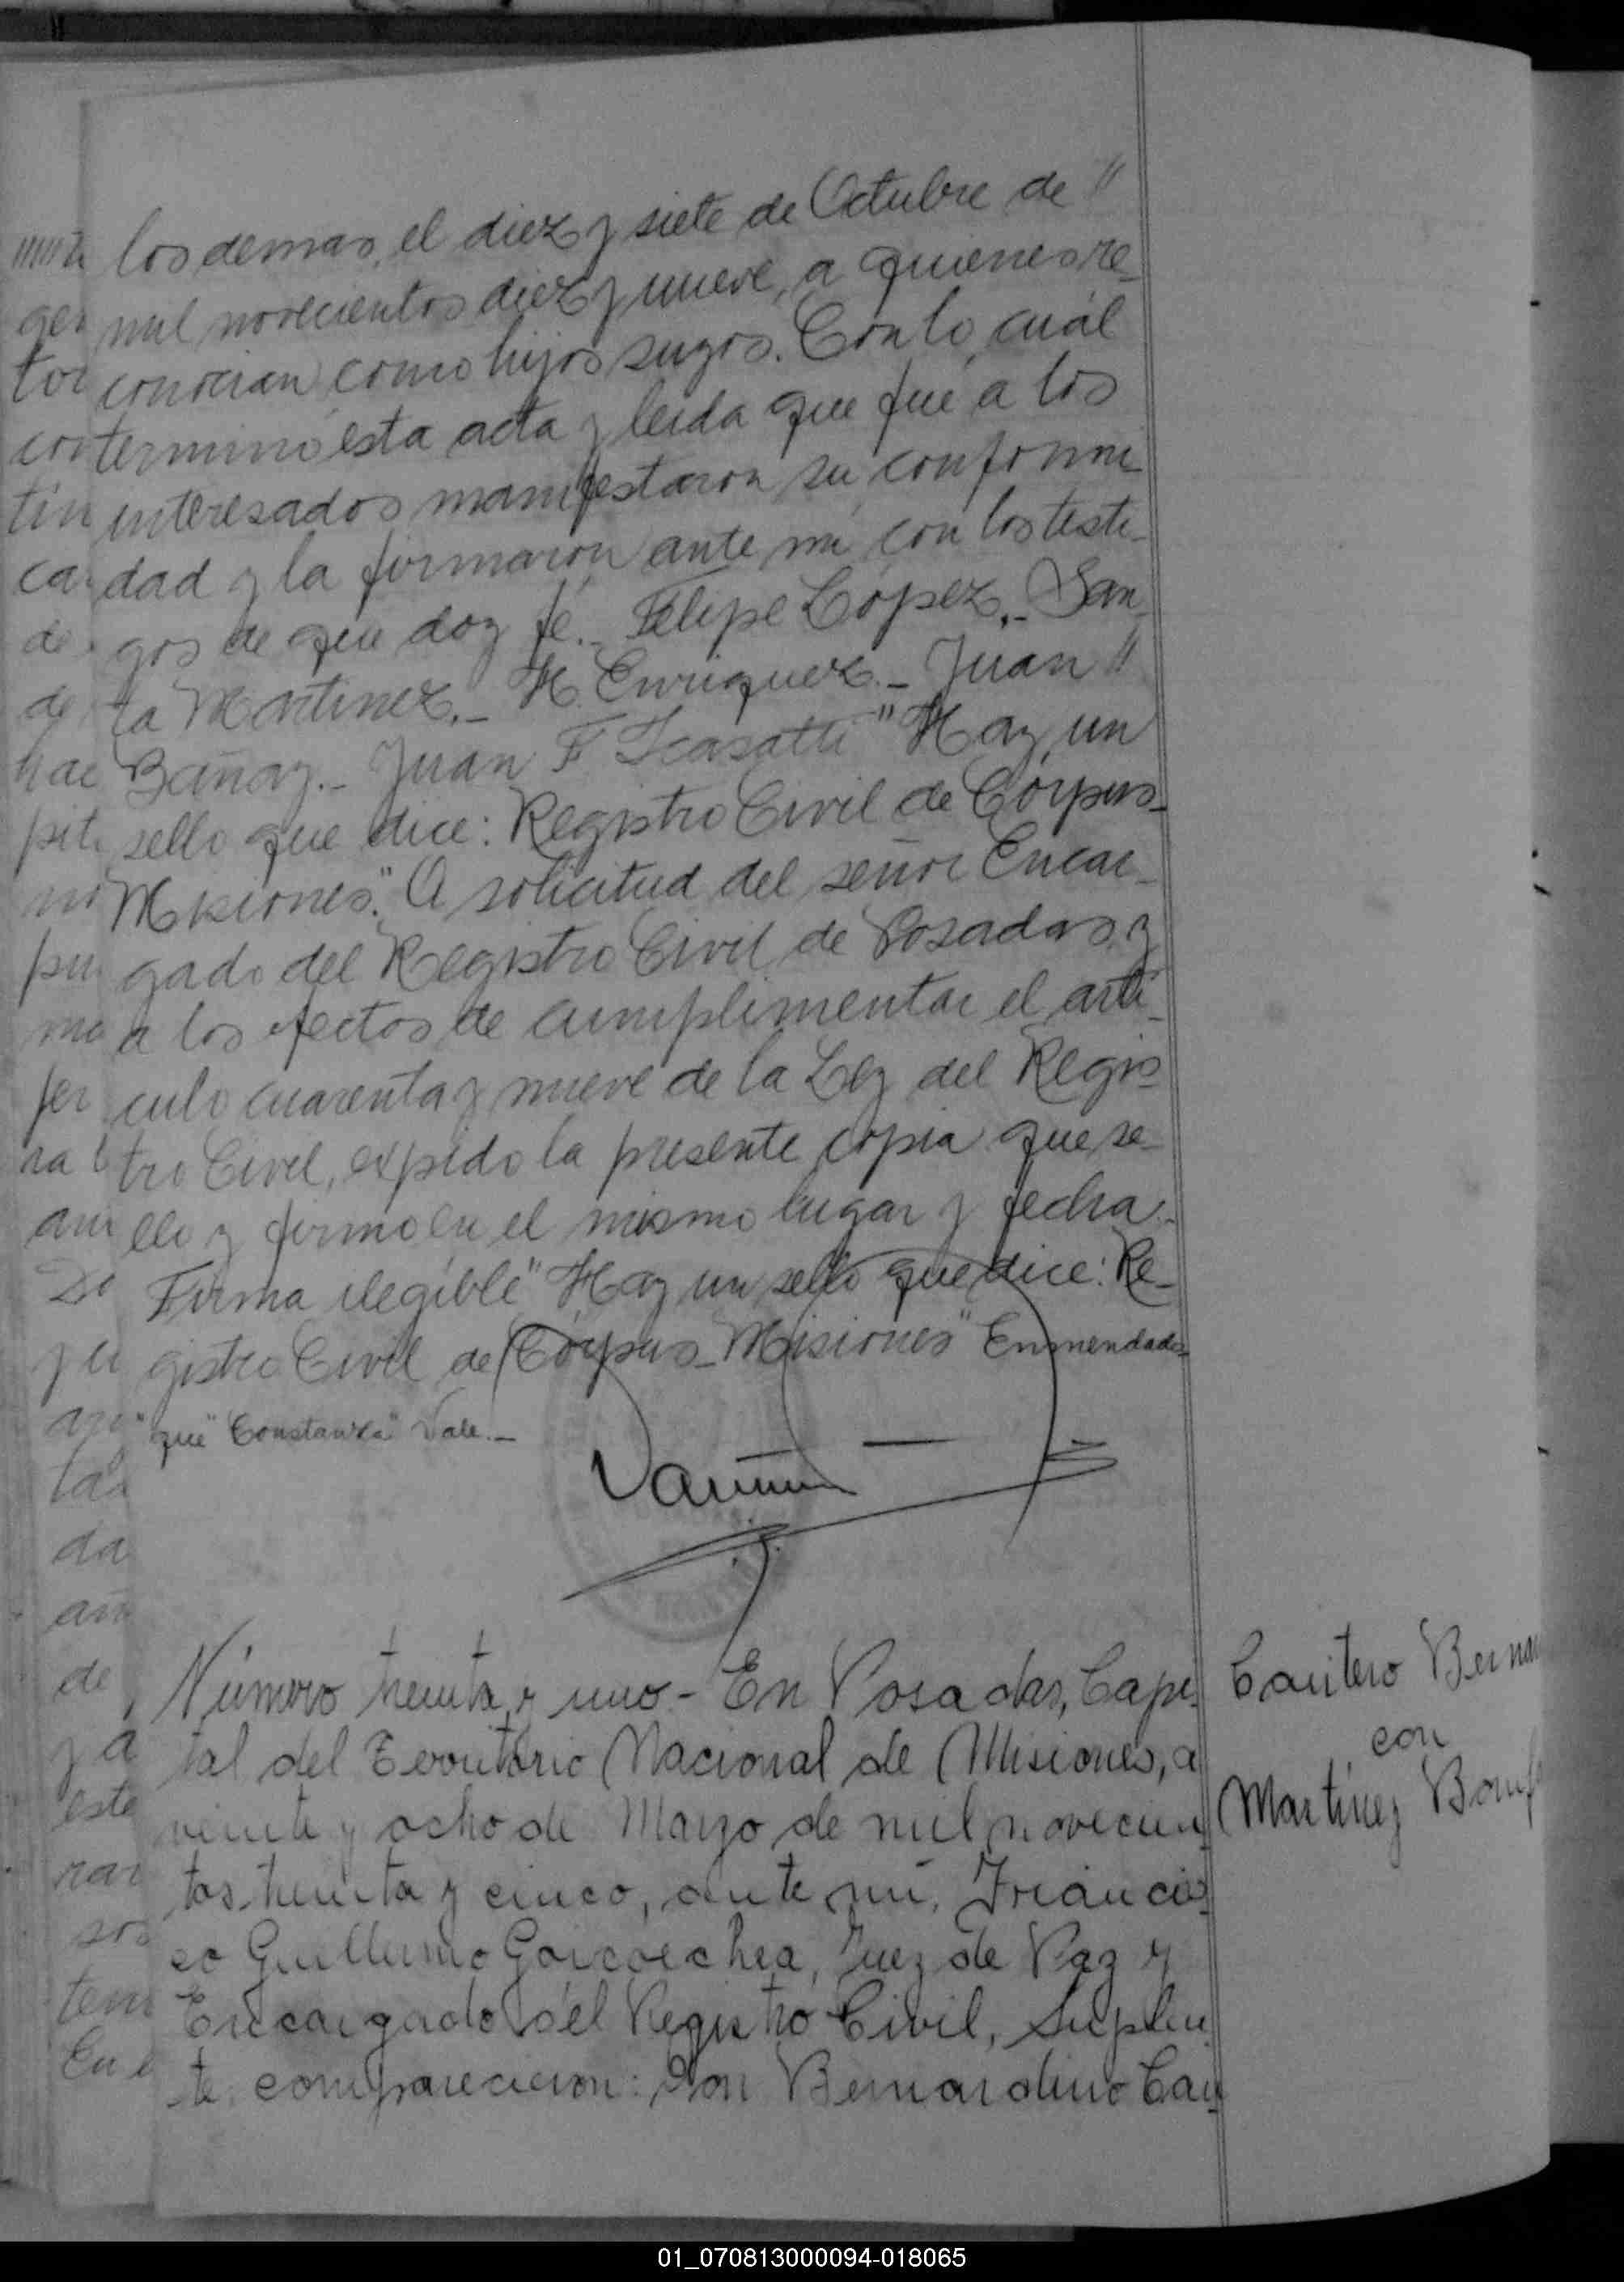 los demas, el diez y siete de Octubre de "
mil novecientos diez y nueve, a quienes re-
conocian como hijos suyos. Con lo cuál
terminó esta acta y leida que fué a los
interesados manifestaron su conformi-
dad y la firmaron ante mi con los testi-
gos de que doy fé._ Felipe López._ San-
ta Martinez._ H. Enriquez._ Juan "
Bañay._ Juan F "Hay un
sello que dice: Registro Civil de Córpus-
Misiones". A solicitud del señor Encar-
gado del Registro Civil de Posadas, y
a los efectos de cumplimentar el arti-
culo cuarenta y nueve de la Ley del Regis-
tro Civil, expido la presente copia que se-
llo y firmo en el mismo lugar y fecha._
Firma ilegible" Hay un sello que dice: Re-
gistro Civil de Córpus-Misiones" Enmendado-
"que" "Constanza" Vale._
Número treinta y uno- En Posadas, Capi-
tal del Territorio Nacional de Misiones, a
veinte y ocho de Marzo de mil novecien-
tos treinta y cinco, ante mi, Francis-
co Guillermo Goicoechea, Juez de Paz y
Encargado del Registro Civil, Suplen-
te, comparecieron: Don Bernardino Can-
Cantero Berna
con
Martínez Bonif
01_070813000094-018065